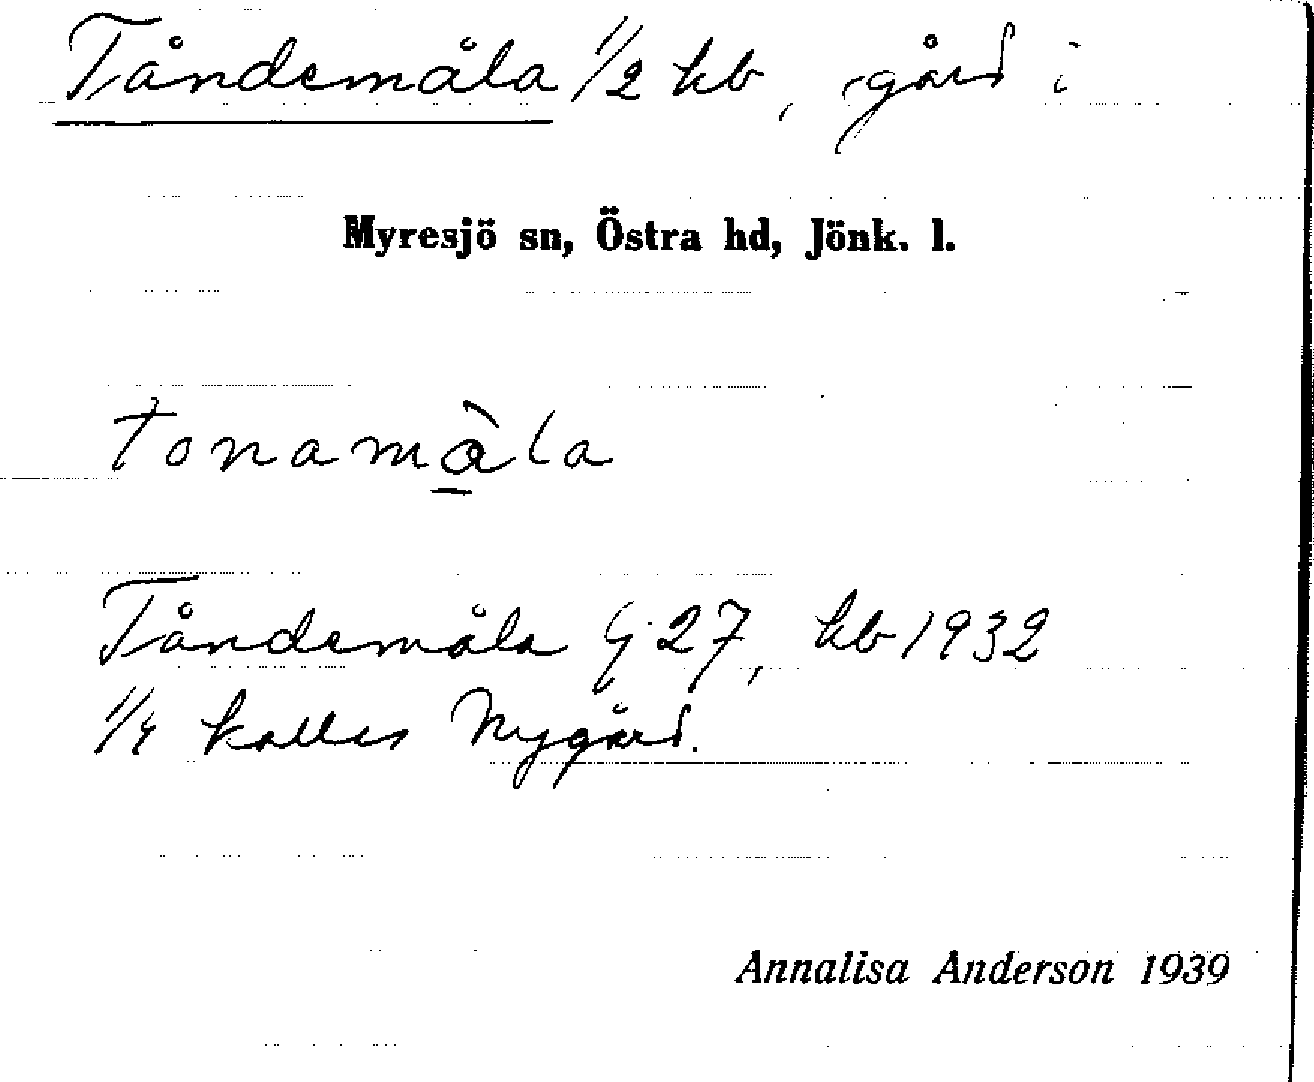 Tåndemåla 1/2 hb, gård i
Myresjö sn, Östra hd, Jönk. l.
tonamàla
Tåndemåla G 27, hb 1932
1/4 kallas Nygård.
Annalisa Anderson 1939